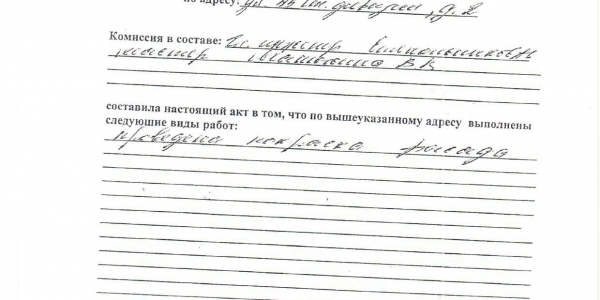 по адресу: ул.
Комиссия в составе: Гл. инженер
мастер В.В
составила настоящий акт в том, что по вышеуказанному адресу выполнены
следующие виды работ:
проведена покраска фасада